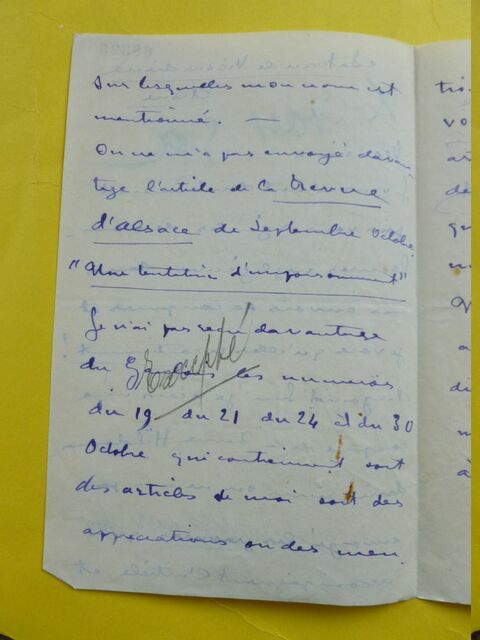 sur lesquelles mon nom est
mentionné. —
On ne m'a pas envoyé davan
tage l'article de la Revue
d'alsace de Septembre Octobre
"Une tentative d'empoisonnement"
Je n'ai pas reçu davantage
du les numéros
du 19 du 21 du 24 et du 30
Octobre qui contiennent soit
des articles de moi soit des
appréciations ou des men
tio
vo
ar
de
qu